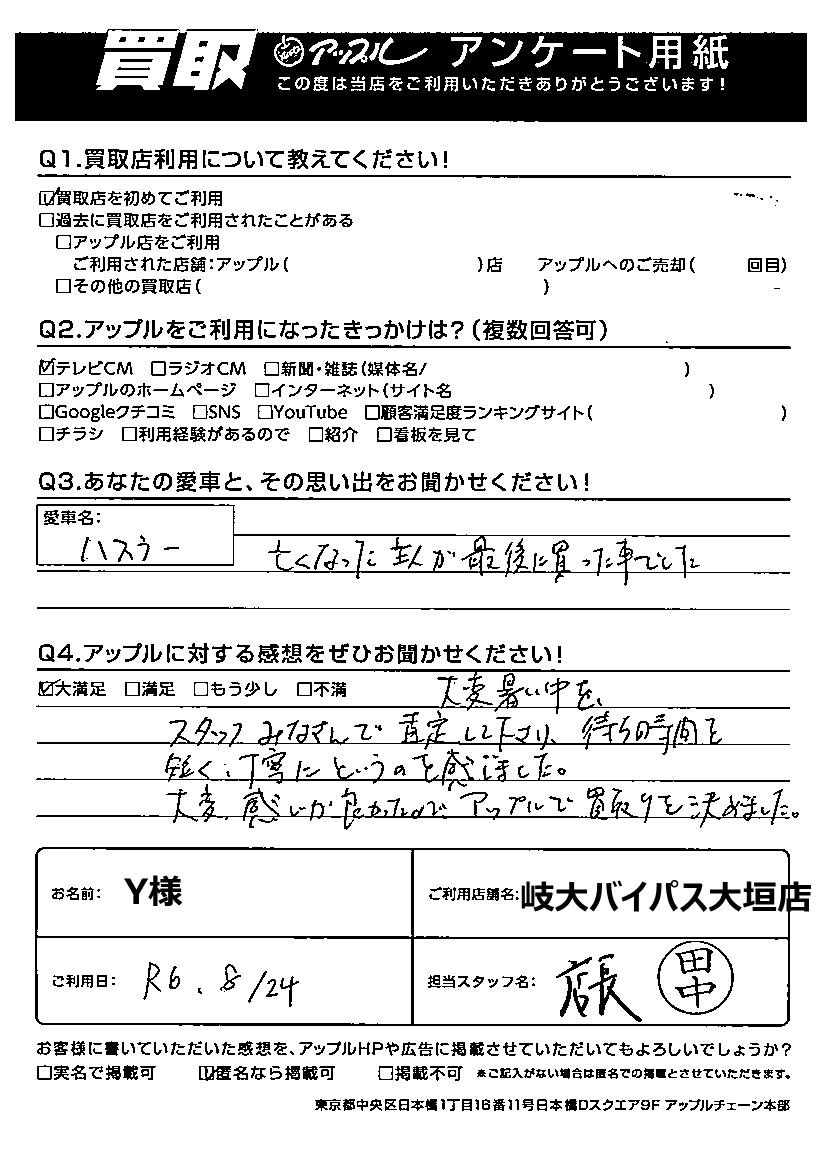 買取 アップル アンケート用紙
この度は当店をご利用いただきありがとうございます!
Q1.買取店利用について教えてください!
☑買取店を初めてご利用
□過去に買取店をご利用されたことがある
□アップル店をご利用
ご利用された店舗:アップル( )店 アップルへのご売却( 回目)
□その他の買取店( )
Q2.アップルをご利用になったきっかけは?(複数回答可)
☑テレビCM □ラジオCM □新聞・雑誌(媒体名/ )
□アップルのホームページ □インターネット(サイト名 )
□Googleクチコミ □SNS □YouTube □顧客満足度ランキングサイト( )
□チラシ □利用経験があるので □紹介 □看板を見て
Q3.あなたの愛車と、その思い出をお聞かせください!
愛車名:
ハスラー 亡くなった主人が最後に買った車でした
Q4.アップルに対する感想をぜひお聞かせください!
☑大満足 □満足 □もう少し □不満 大変暑い中を、
スタッフみなさんで査定して下さり、待ちの時間を
短く、丁寧にというのを感じました。
大変、感じが良かったので、アップルで買取りを決めました。
お名前: Y様 ご利用店舗名:岐大バイパス大垣店
ご利用日: R6.8/24 担当スタッフ名: 店長 田中
お客様に書いていただいた感想を、アップルHPや広告に掲載させていただいてもよろしいでしょうか?
□実名で掲載可 ☑匿名なら掲載可 □掲載不可 ※ご記入がない場合は匿名での掲載とさせていただきます。
東京都中央区日本橋1丁目16番11号日本橋Dスクエア9F アップルチェーン本部